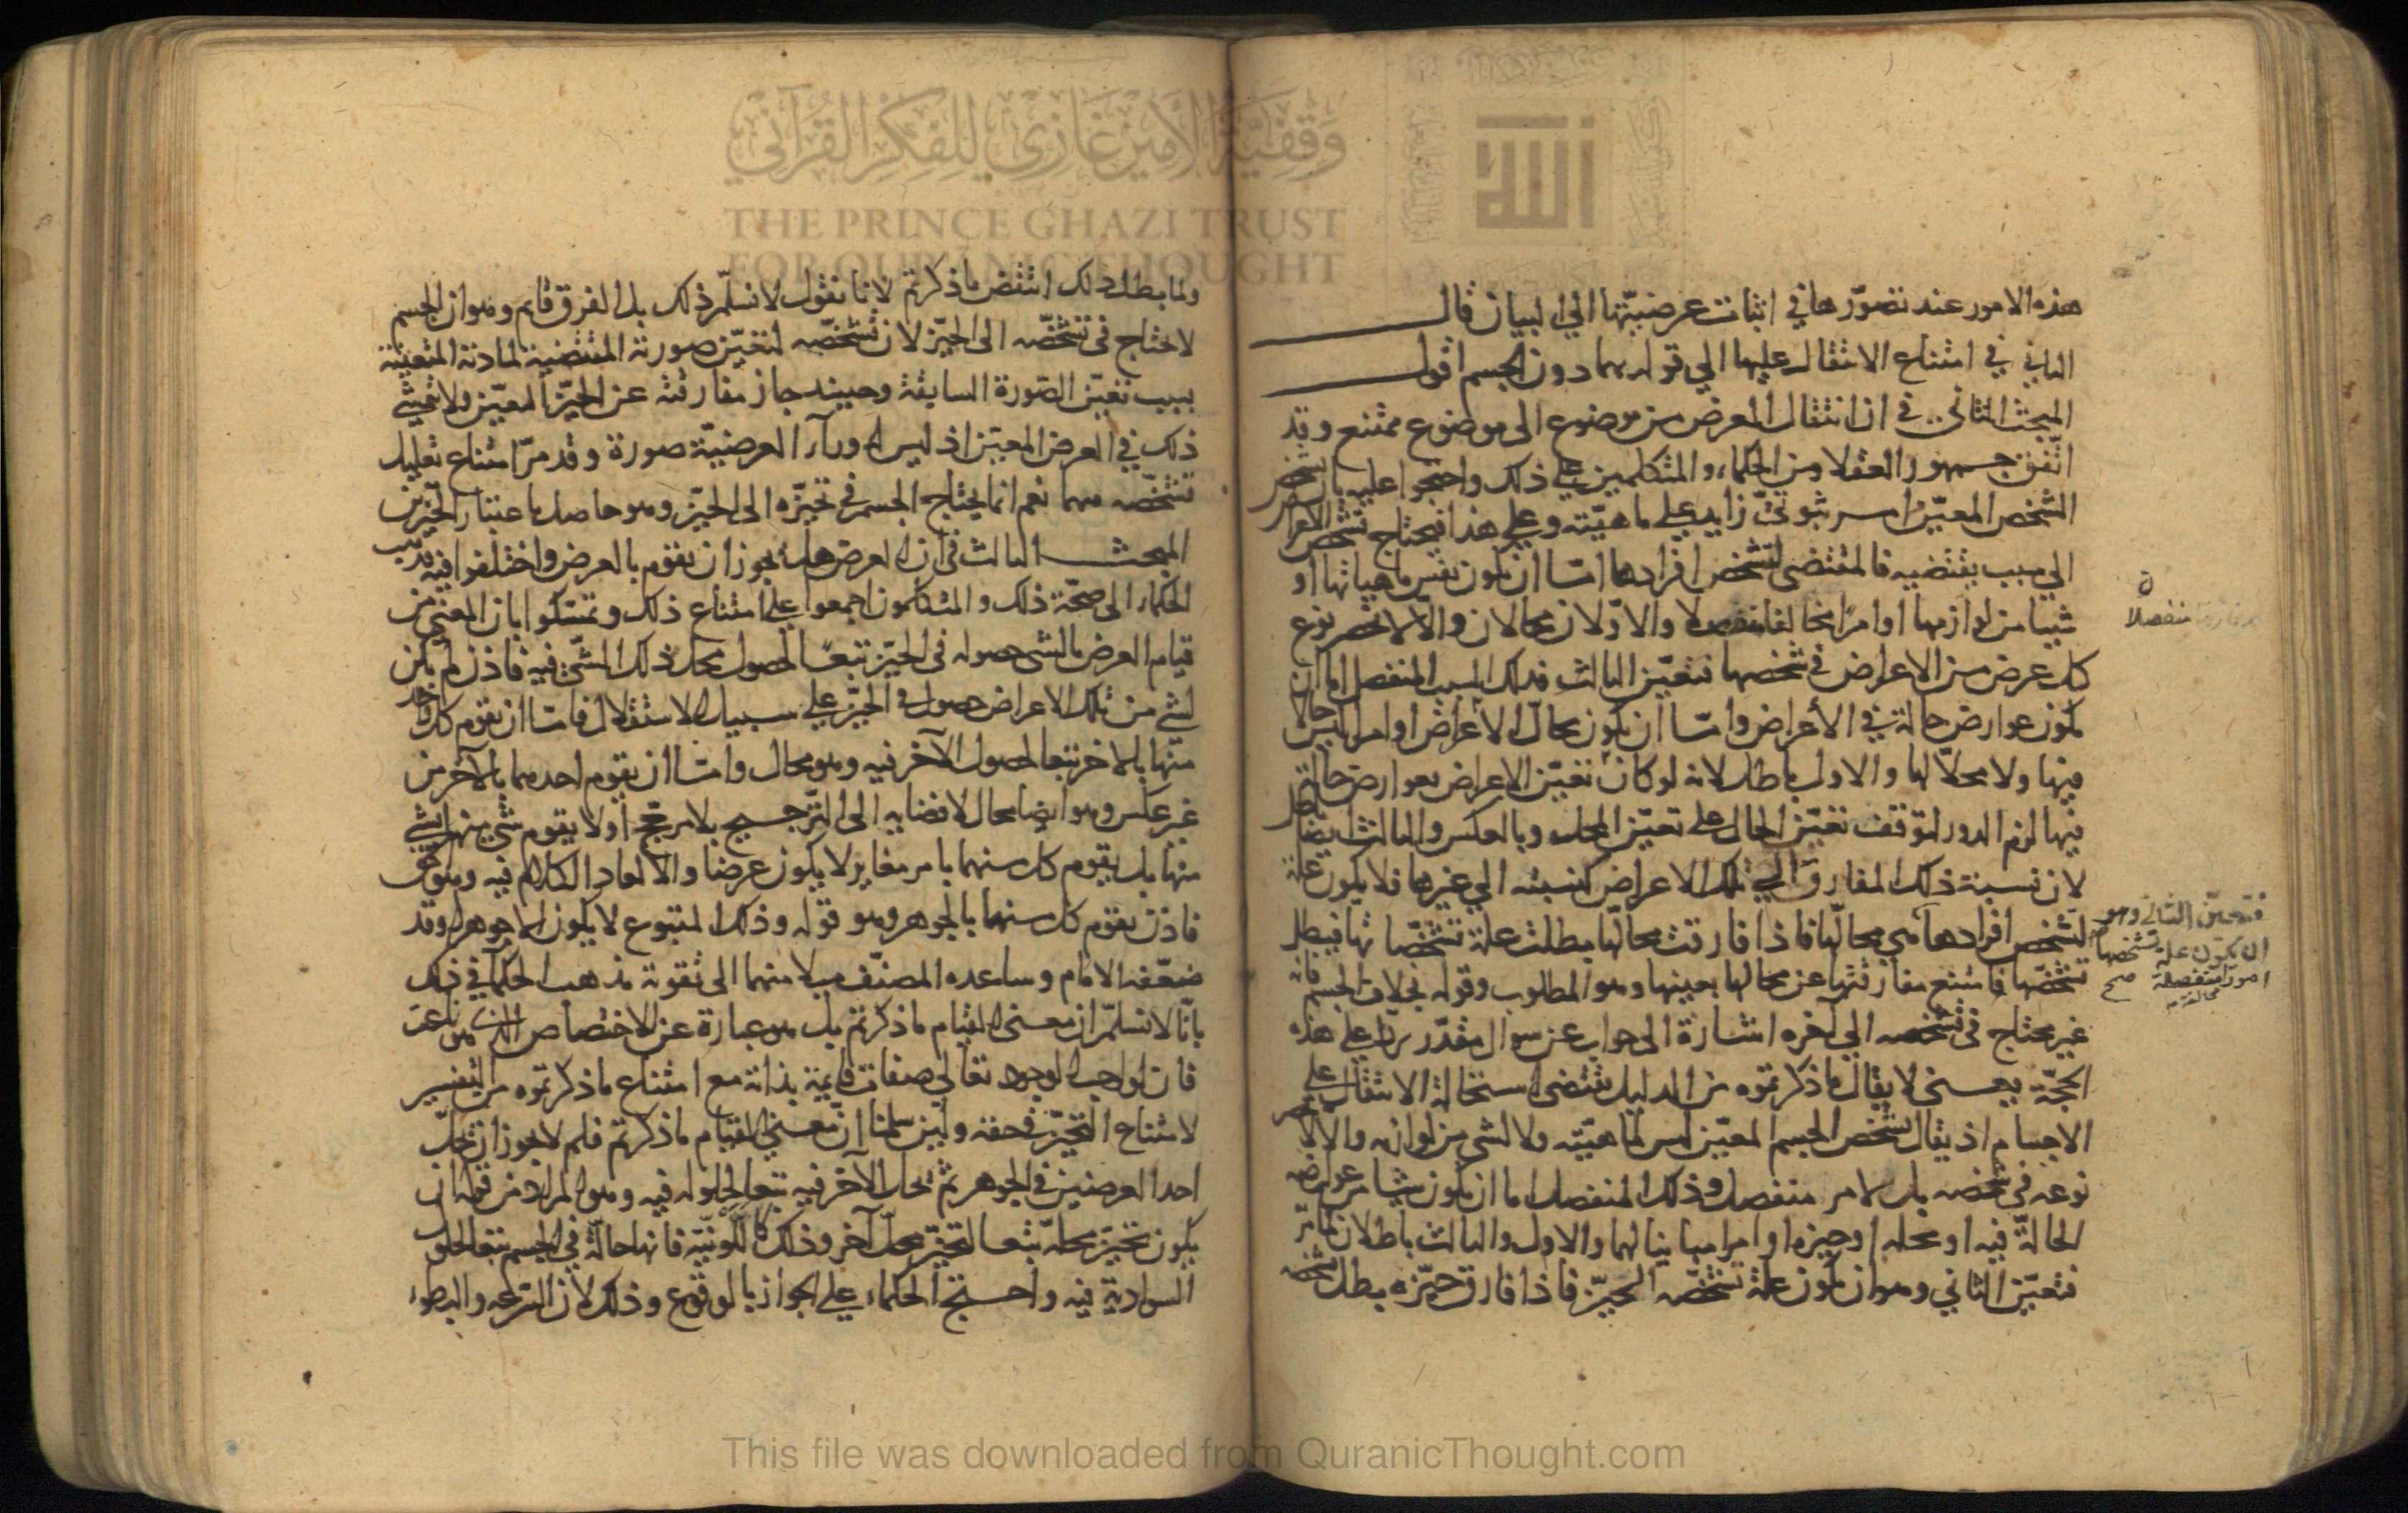 هذه الامور عند تصورها في اثبات عرضيتها الى البيان قال
الثاني في امتناع الانتقال عليها الى قوله بهما دون الجسم اقول
المبحث الثاني في ان انتقال العرض من موضوع الى موضوع ممتنع وقد
اتفق جمهور العقلا من الحكماء والمتكلمين على ذلك واحتجوا عليه بان تشخص
الشخص المعين امر ثبوتي زايد على ماهيته وعلى هذا فيحتاج تشخص الاعراض
الى سبب يقتضيه فالمقتضى لتشخص افرادها اما ان يكون نفس ماهياتها او
شيئا من لوازمها او امرا مخالفا منفصلا والاولان محالان والا لانحصر نوع
كل عرض من الاعراض في شخصها فتعين الثالث فذلك السبب المنفصل اما ان
يكون عوارض حالة في الأعراض واما ان يكون محال الأعراض او امرا ليس حالا
فيها ولا محلا لها والاول باطل لانه لو كان تعين الاعراض بعوارض حالة
فيها لزم الدور لتوقف تعين الحال على تعين المحل وبالعكس والثالث ايضا باطل
لان نسبة ذلك المفارق الى تلك الاعراض كنسبته الى غيرها فلا يكون علة
لتشخص افرادها هي محالها فاذا فارقت محالها بطلت علة تشخصاتها فيبطل
تشخصها فامتنع مفارقتها عن محالها بعينها وهو المطلوب وقوله بخلاف الجسم فانه
غير محتاج في تشخصه الى آخره اشارة الى جواب عن سوال مقدر يرد على هذه
الحجة بمعنى لا يقال ما ذكرتموه من الدليل يقتضى استحالة الانتقال على
الاجسام اذ يقال تشخص الجسم المعين ليس لماهيته ولا لشى من لوازمه والا لانحصر
نوعه في شخصه بل لامر منفصل وذلك المنفصل اما ان يكون شيئا من عوارضه
الحالة فيه او محله او حيزه او امرا مباينا لهما والاول والثالث باطلان لما مر
فتعين الثاني وهو ان يكون علة تشخصه الحيز فاذا فارق حيزه بطل تشخصه
منفصلا
فتعين الثاني وهو
ان يكون علة تشخصها
امورا منفصلة صح
ولما بطل ذلك انتقض ما ذكرتم لانا نقول لا نسلم ذلك بل الفرق قايم وهو ان الجسم
لا يحتاج في تشخصه الى الحيز لان تشخصه لتعين صورته المقتضية لمادته المتعينة
بسبب تعين الصورة السابقة وحينيذ جاز مفارقته عن الحيز المعين ولا يتمشى
ذلك في العرض المعين اذ ليس له ورآء العرضية صورة وقد مر امتناع تعليل
تشخصه بهما نعم انما يحتاج الجسم في تحيزه الى الحيز وهو حاصل باعتبار الحيزين
المبحث الثالث في ان العرض هل يجوز ان يقوم بالعرض واختلفوا فيه فذهب
الحكماء الى صحة ذلك والمتكلمون اجمعوا على امتناع ذلك وتمسكوا بان المعنى من
قيام العرض بالشى حصوله في الحيز تبعا لحصول محل ذلك الشى فيه فاذن لم يكن
لشى من تلك الاعراض حصول في الحيز على سبيل الاستقلال فاما ان يقوم كل واحد
منها بالاخر تبعا لحصول الآخر فيه وهو محال واما ان يقوم احدهما بالآخر من
غير عكس وهو ايضا محال لافضايه الى الترجيح بلا مرجح أو لا يقوم شى منهما بشى
منها بل يقوم كل منهما بامر مغاير لا يكون عرضا والا لعاد الكلام فيه وهو حق
فاذن يقوم كل منهما بالجوهر وهو قوله وذلك المتبوع لا يكون الا جوهرا وقد
ضعفه الامام وساعده المصنف ميلا منهما الى تقوية مذهب الحكماء في ذلك
بانا لا نسلم ان معنى القيام ما ذكرتم بل هو عبارة عن الاختصاص الناعت
فان لواجب الوجود تعالى صفات قايمة بذاته مع امتناع ما ذكرتموه من التفسير
لامتناع التحيز في حقه ولين سلمنا ان معنى القيام ما ذكرتم فلم لا يجوز ان يحل
احد العرضين في الجوهر ثم يحل الآخر فيه تبعا لحلوله فيه وهو المراد من قوله ان
يكون تحيز محله تبعا لتحيز محل آخر وذلك كاللونية فانها حالة في الجسم تبعا لحلول
السوادية فيه واحتج الحكماء على الجواز بالوقوع وذلك لان السرعه والبطوء
وقفية الأمير غازي للفكر القرآني
THE PRINCE GHAZI TRUST
FOR QUR'ANIC THOUGHT
الله
This file was downloaded from QuranicThought.com